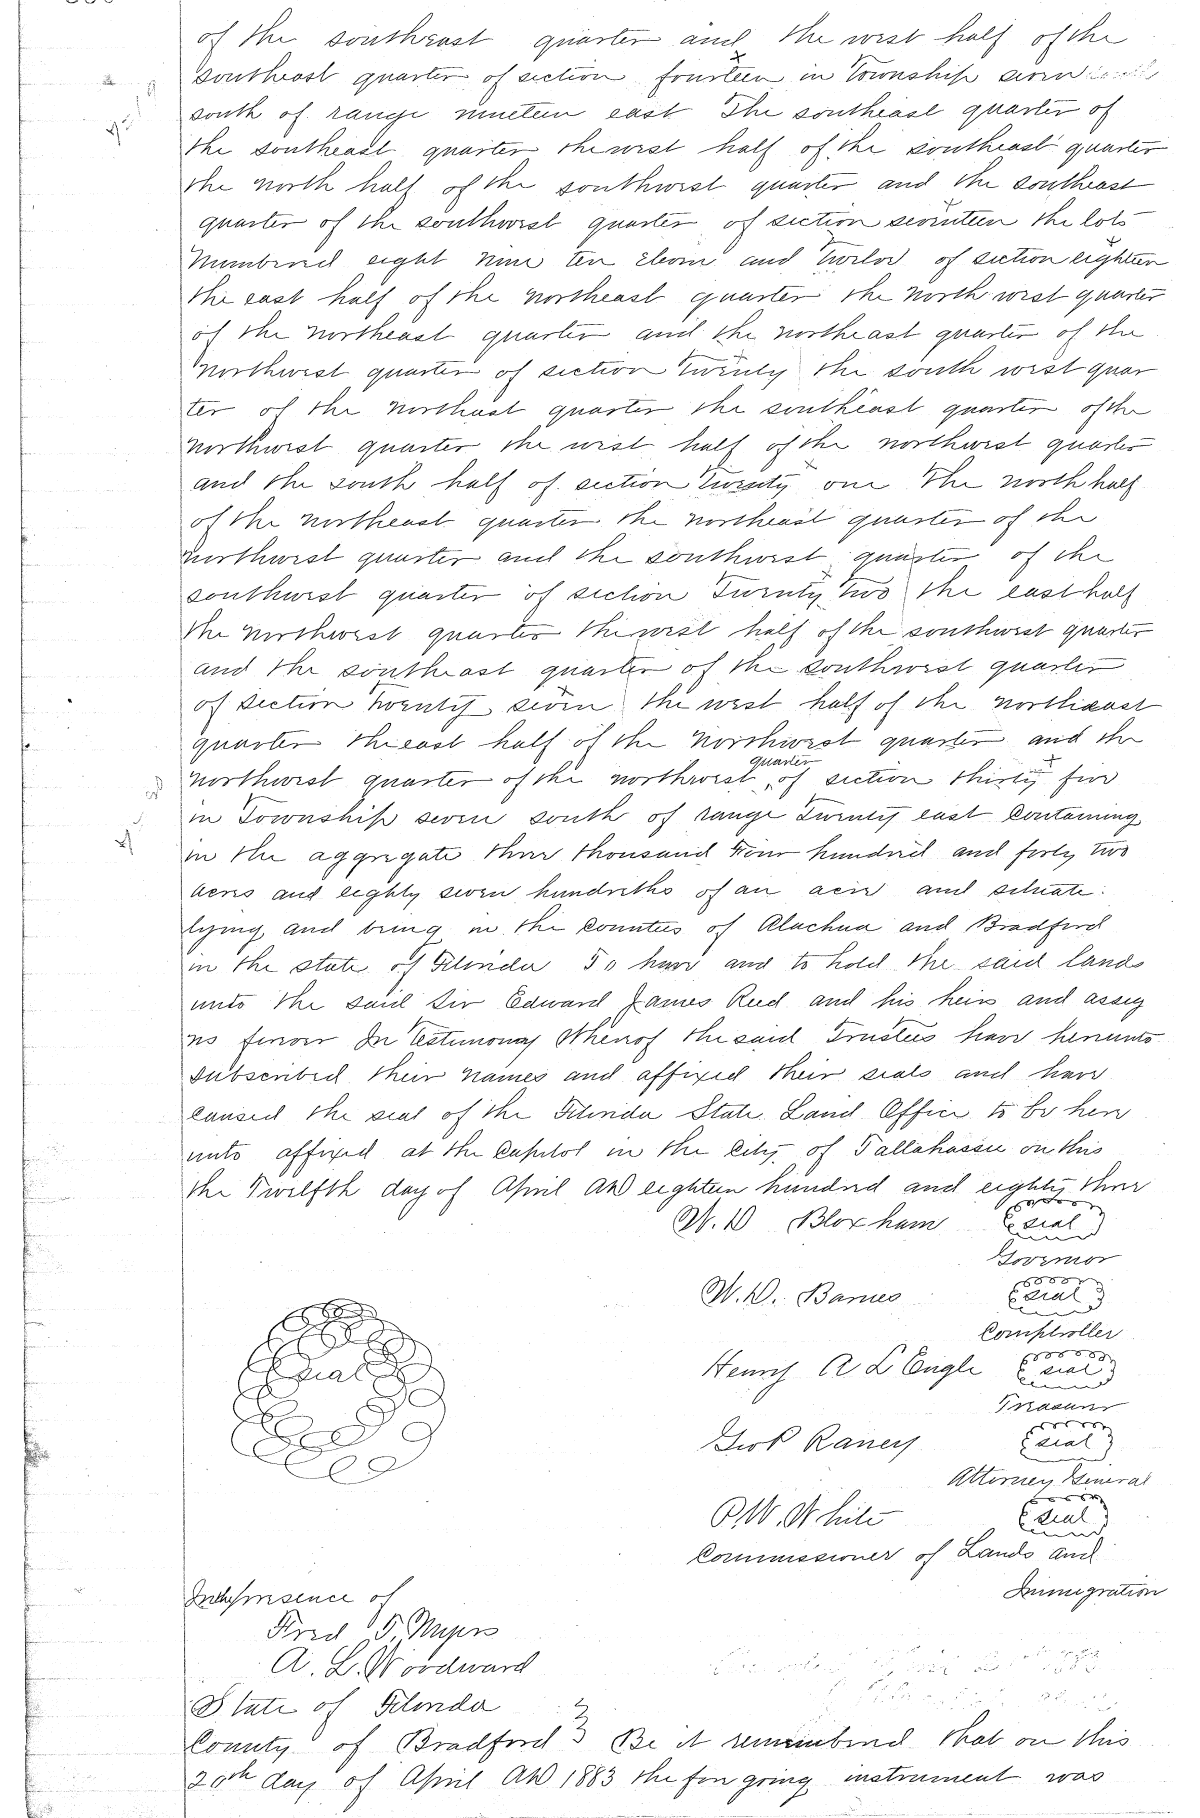 of the southeast quarter and the west half of the
southeast quarter of section fourteen in Township seven
south of range nineteen east The southeast quarter of
the southeast quarter the west half of the southeast quarter
the north half of the southwest quarter and the southeast
quarter of the southwest quarter of section seventeen the lots
numbered eight nine ten eleven and twelve of section eighteen
the east half of the northeast quarter the north west quarter
of the northeast quarter and the northeast quarter of the
northwest quarter of section twenty the south west quar
ter of the northeast quarter the southeast quarter of the
northwest quarter the west half of the northwest quarter
and the south half of section twenty one The north half
of the northeast quarter the northeast quarter of the
northwest quarter and the southwest quarter of the
southwest quarter of section Twenty two the east half
the northwest quarter the west half of the southwest quarter
and the southeast quarter of the southwest quarter
of section twenty seven the west half of the northeast
quarter the east half of the northwest quarter and the
northwest quarter of the northwest quarter of section thirty five
in Township seven south of range Twenty east Containing
in the aggregate three thousand four hundred and forty two
acres and eighty seven hundreths of an acre and situate
lying and being in the Counties of Alachua and Bradford
in the state of Florida To have and to hold the said lands
unto the said Sir Edward James Reed and his heirs and assig
ns forever In Testimony Whereof the said Trustees have hereunto
subscribed their names and affixed their seals and have
caused the seal of the Florida State Land Office to be here
unto affixed at the Capitol in the City of Tallahassee on this
the Twelfth day of April AD eighteen hundred and eighty three
W. D Bloxham seal
Governor
W. D. Barnes seal
Comptroller
Henry A L Engle seal
Treasurer
seal
Geo P Raney seal
Attorney General
P. W. White seal
Commissioner of Lands and
Immigration
In the presence of
Fred T. Myers
A. L. Woodward
State of Florida
County of Bradford } Be it remembered that on this
20th day of April AD 1883 the fore going instrument was